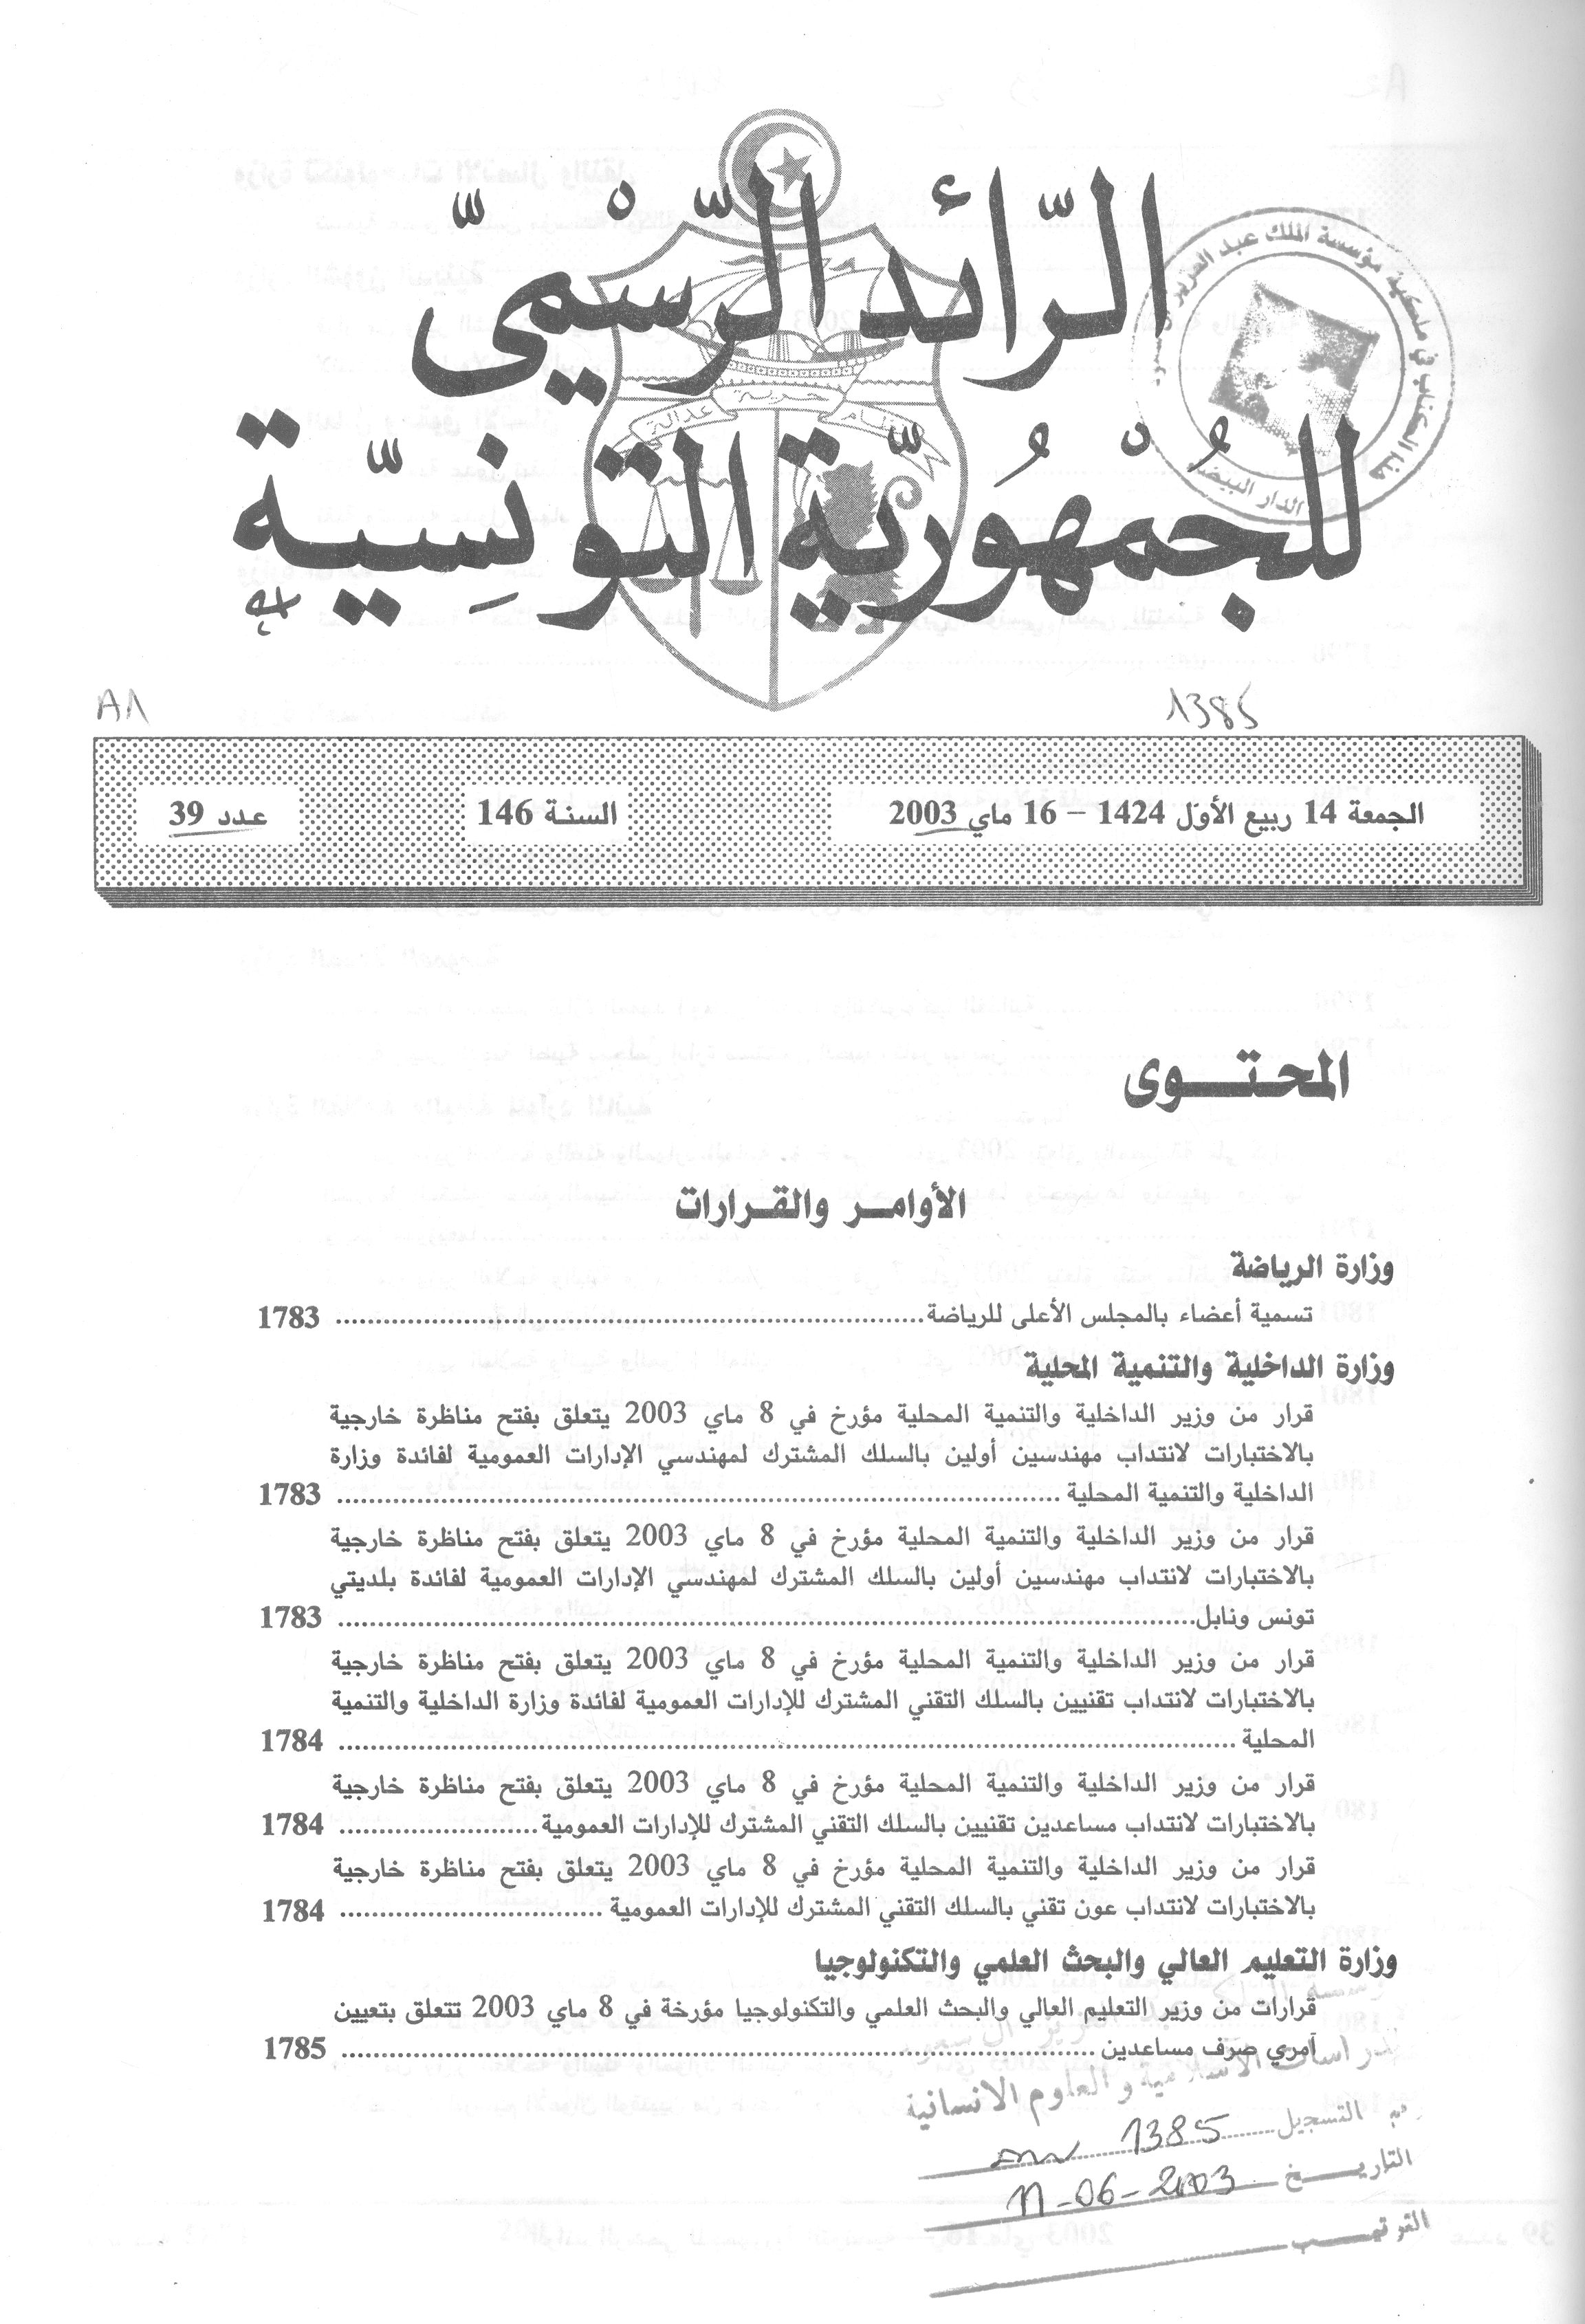 الرّائد الرّسْميّ
للجُمْهُوريّة التّونِسيّة
نظام حرية عدالة
هذا الكتاب في ملكية مؤسسة الملك عبد العزيز
الدار البيضاء
A1
1385
الجمعة 14 ربيع الأوّل 1424 – 16 ماي 2003
السنة 146
عدد 39
المحتوى
الأوامر والقرارات
وزارة الرياضة
تسمية أعضاء بالمجلس الأعلى للرياضة 1783
وزارة الداخلية والتنمية المحلية
قرار من وزير الداخلية والتنمية المحلية مؤرخ في 8 ماي 2003 يتعلق بفتح مناظرة خارجية
بالاختبارات لانتداب مهندسين أولين بالسلك المشترك لمهندسي الإدارات العمومية لفائدة وزارة
الداخلية والتنمية المحلية 1783
قرار من وزير الداخلية والتنمية المحلية مؤرخ في 8 ماي 2003 يتعلق بفتح مناظرة خارجية
بالاختبارات لانتداب مهندسين أولين بالسلك المشترك لمهندسي الإدارات العمومية لفائدة بلديتي
تونس ونابل 1783
قرار من وزير الداخلية والتنمية المحلية مؤرخ في 8 ماي 2003 يتعلق بفتح مناظرة خارجية
بالاختبارات لانتداب تقنيين بالسلك التقني المشترك للإدارات العمومية لفائدة وزارة الداخلية والتنمية
المحلية 1784
قرار من وزير الداخلية والتنمية المحلية مؤرخ في 8 ماي 2003 يتعلق بفتح مناظرة خارجية
بالاختبارات لانتداب مساعدين تقنيين بالسلك التقني المشترك للإدارات العمومية 1784
قرار من وزير الداخلية والتنمية المحلية مؤرخ في 8 ماي 2003 يتعلق بفتح مناظرة خارجية
بالاختبارات لانتداب عون تقني بالسلك التقني المشترك للإدارات العمومية 1784
وزارة التعليم العالي والبحث العلمي والتكنولوجيا
قرارات من وزير التعليم العالي والبحث العلمي والتكنولوجيا مؤرخة في 8 ماي 2003 تتعلق بتعيين
آمري صرف مساعدين 1785
والعلوم الانسانية
التسجيل 1385
التاريخ 11-06-2003
الترتيب